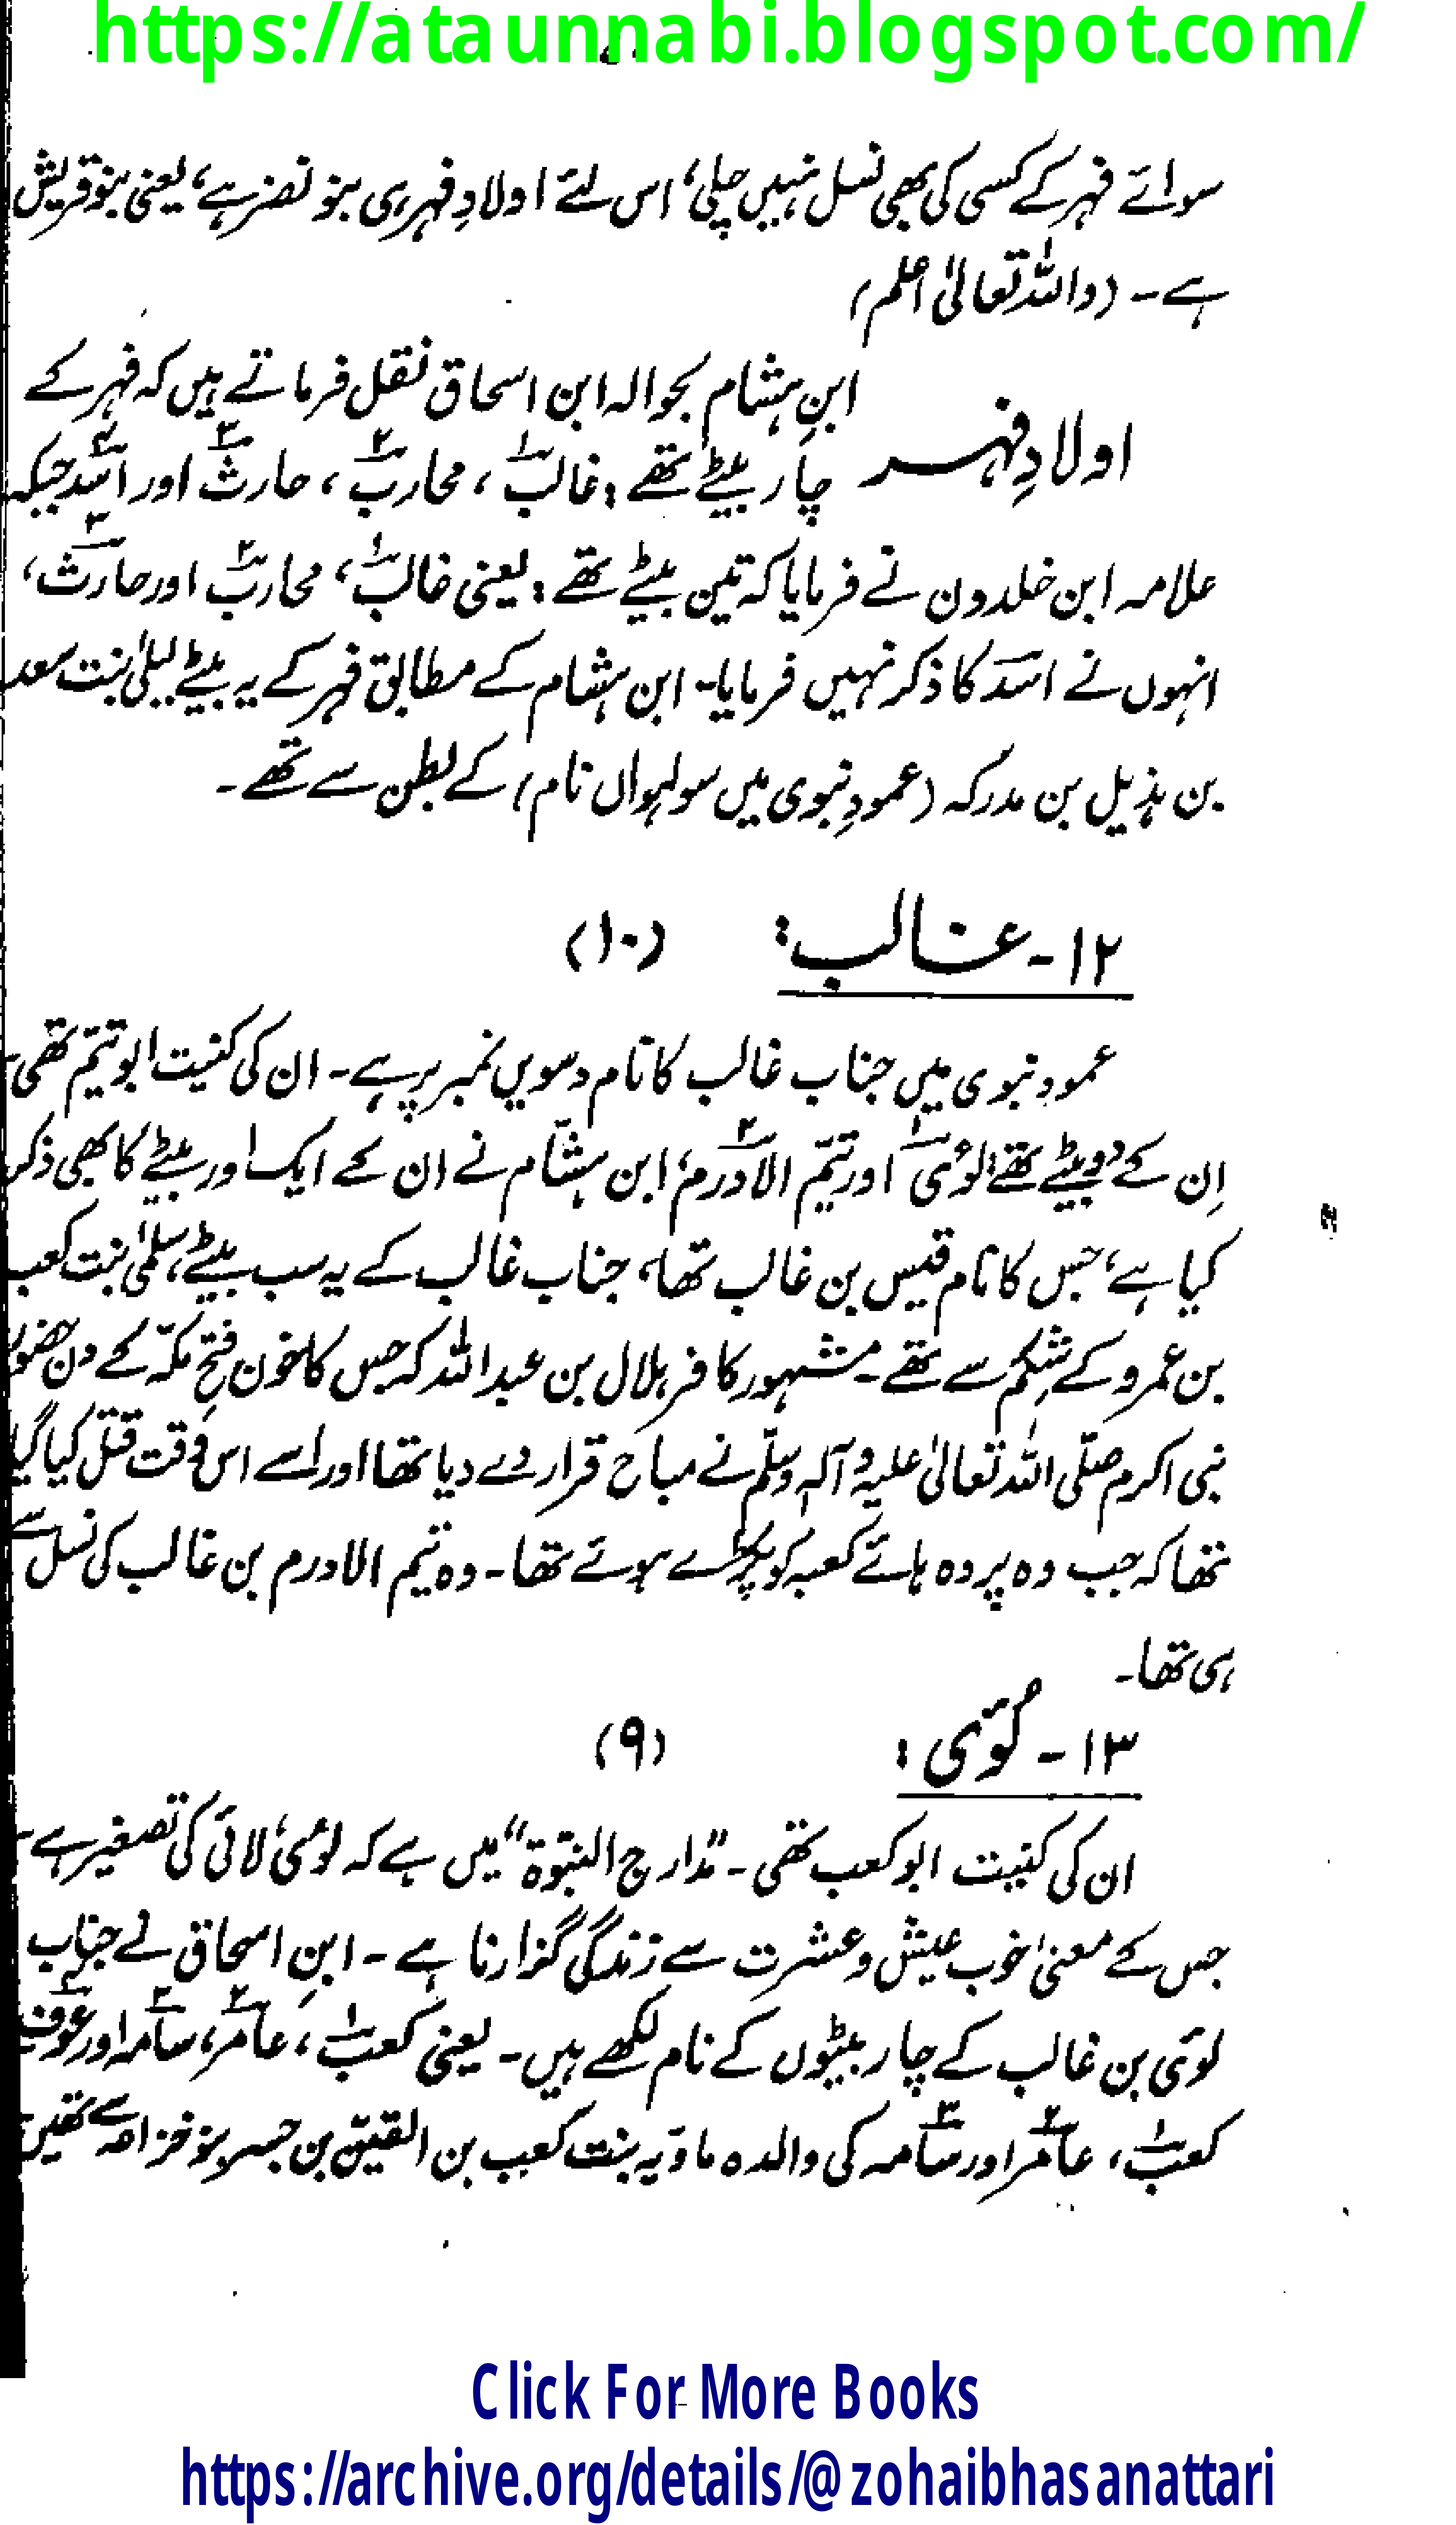 https://ataunnabi.blogspot.com/
سوائے فہر کے کسی کی بھی نسل نہیں چلی، اس لئے اولادِ فہر ہی بنو نضر ہے، یعنی بنو قریش
ہے۔ (واللہ تعالیٰ اعلم)
اولادِ فہر
ابنِ ہشام بحوالہ ابن اسحاق نقل فرماتے ہیں کہ فہر کے
چار بیٹے تھے: غالب۱، محارب۲، حارث۳ اور اسد۴ جبکہ
علامہ ابن خلدون نے فرمایا کہ تین بیٹے تھے: یعنی غالب۱، محارب۲ اور حارث۳،
انہوں نے اسد کا ذکر نہیں فرمایا۔ ابن ہشام کے مطابق فہر کے یہ بیٹے لیلیٰ بنت سعد
بن ہذیل بن مدرکہ (عمودِ نبوی میں سولہواں نام) کے بطن سے تھے۔
۱۲۔ غالب: (۱۰)
عمودِ نبوی میں جناب غالب کا نام دسویں نمبر پر ہے۔ ان کی کنیت ابو تیم تھی۔
اِن کے دو بیٹے تھے: لوئی۱ اور تیم الادرم۲، ابن ہشام نے ان کے ایک اور بیٹے کا بھی ذکر
کیا ہے، جس کا نام قیس بن غالب تھا، جناب غالب کے یہ سب بیٹے، سلمیٰ بنت کعب
بن عمرو کے شکم سے تھے۔ مشہور کافر ہلال بن عبداللہ کہ جس کا خون فتحِ مکہ کے دن حضور
نبی اکرم صلّی اللہ تعالیٰ علیہ وآلہٖ وسلّم نے مباح قرار دے دیا تھا اور اسے اس وقت قتل کیا گیا
تھا کہ جب وہ پردہ ہائے کعبہ کو پکڑے ہوئے تھا۔ وہ تیم الادرم بن غالب کی نسل سے
ہی تھا۔
۱۳۔ لُوَی: (۹)
ان کی کنیت ابو کعب تھی۔ ”مدارج النبوۃ“ میں ہے کہ لوئی، لائی کی تصغیر ہے۔
جس کے معنیٰ خوب عیش و عشرت سے زندگی گزارنا ہے۔ ابنِ اسحاق نے جناب
لوئی بن غالب کے چار بیٹوں کے نام لکھے ہیں۔ یعنی کعب۱، عامر۲، سامہ۳ اور عوف۴
کعب۱، عامر۲ اور سامہ۳ کی والدہ ماویہ بنت کعب بن القین بن جسر بنو خزاعہ سے تھیں
Click For More Books
https://archive.org/details/@zohaibhasanattari